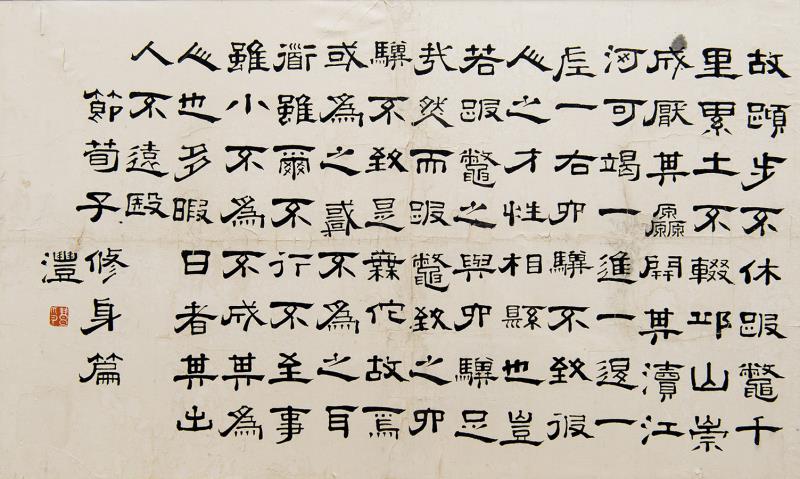 故蹞步不休跛鼈千
里累土不輟邱山崇
成厭其厵開其瀆江
河可竭一進一退一
左一右六驥不致彼
人之才性相縣也豈
若跛鼈之與六驥足
哉然而跛鼈致之六
驥不致是無佗故焉
或為之或不為之耳
衟雖爾不行不至事
雖小不為不成其為
人也多暇日者其出
人不遠殹
節荀子修身篇
灃